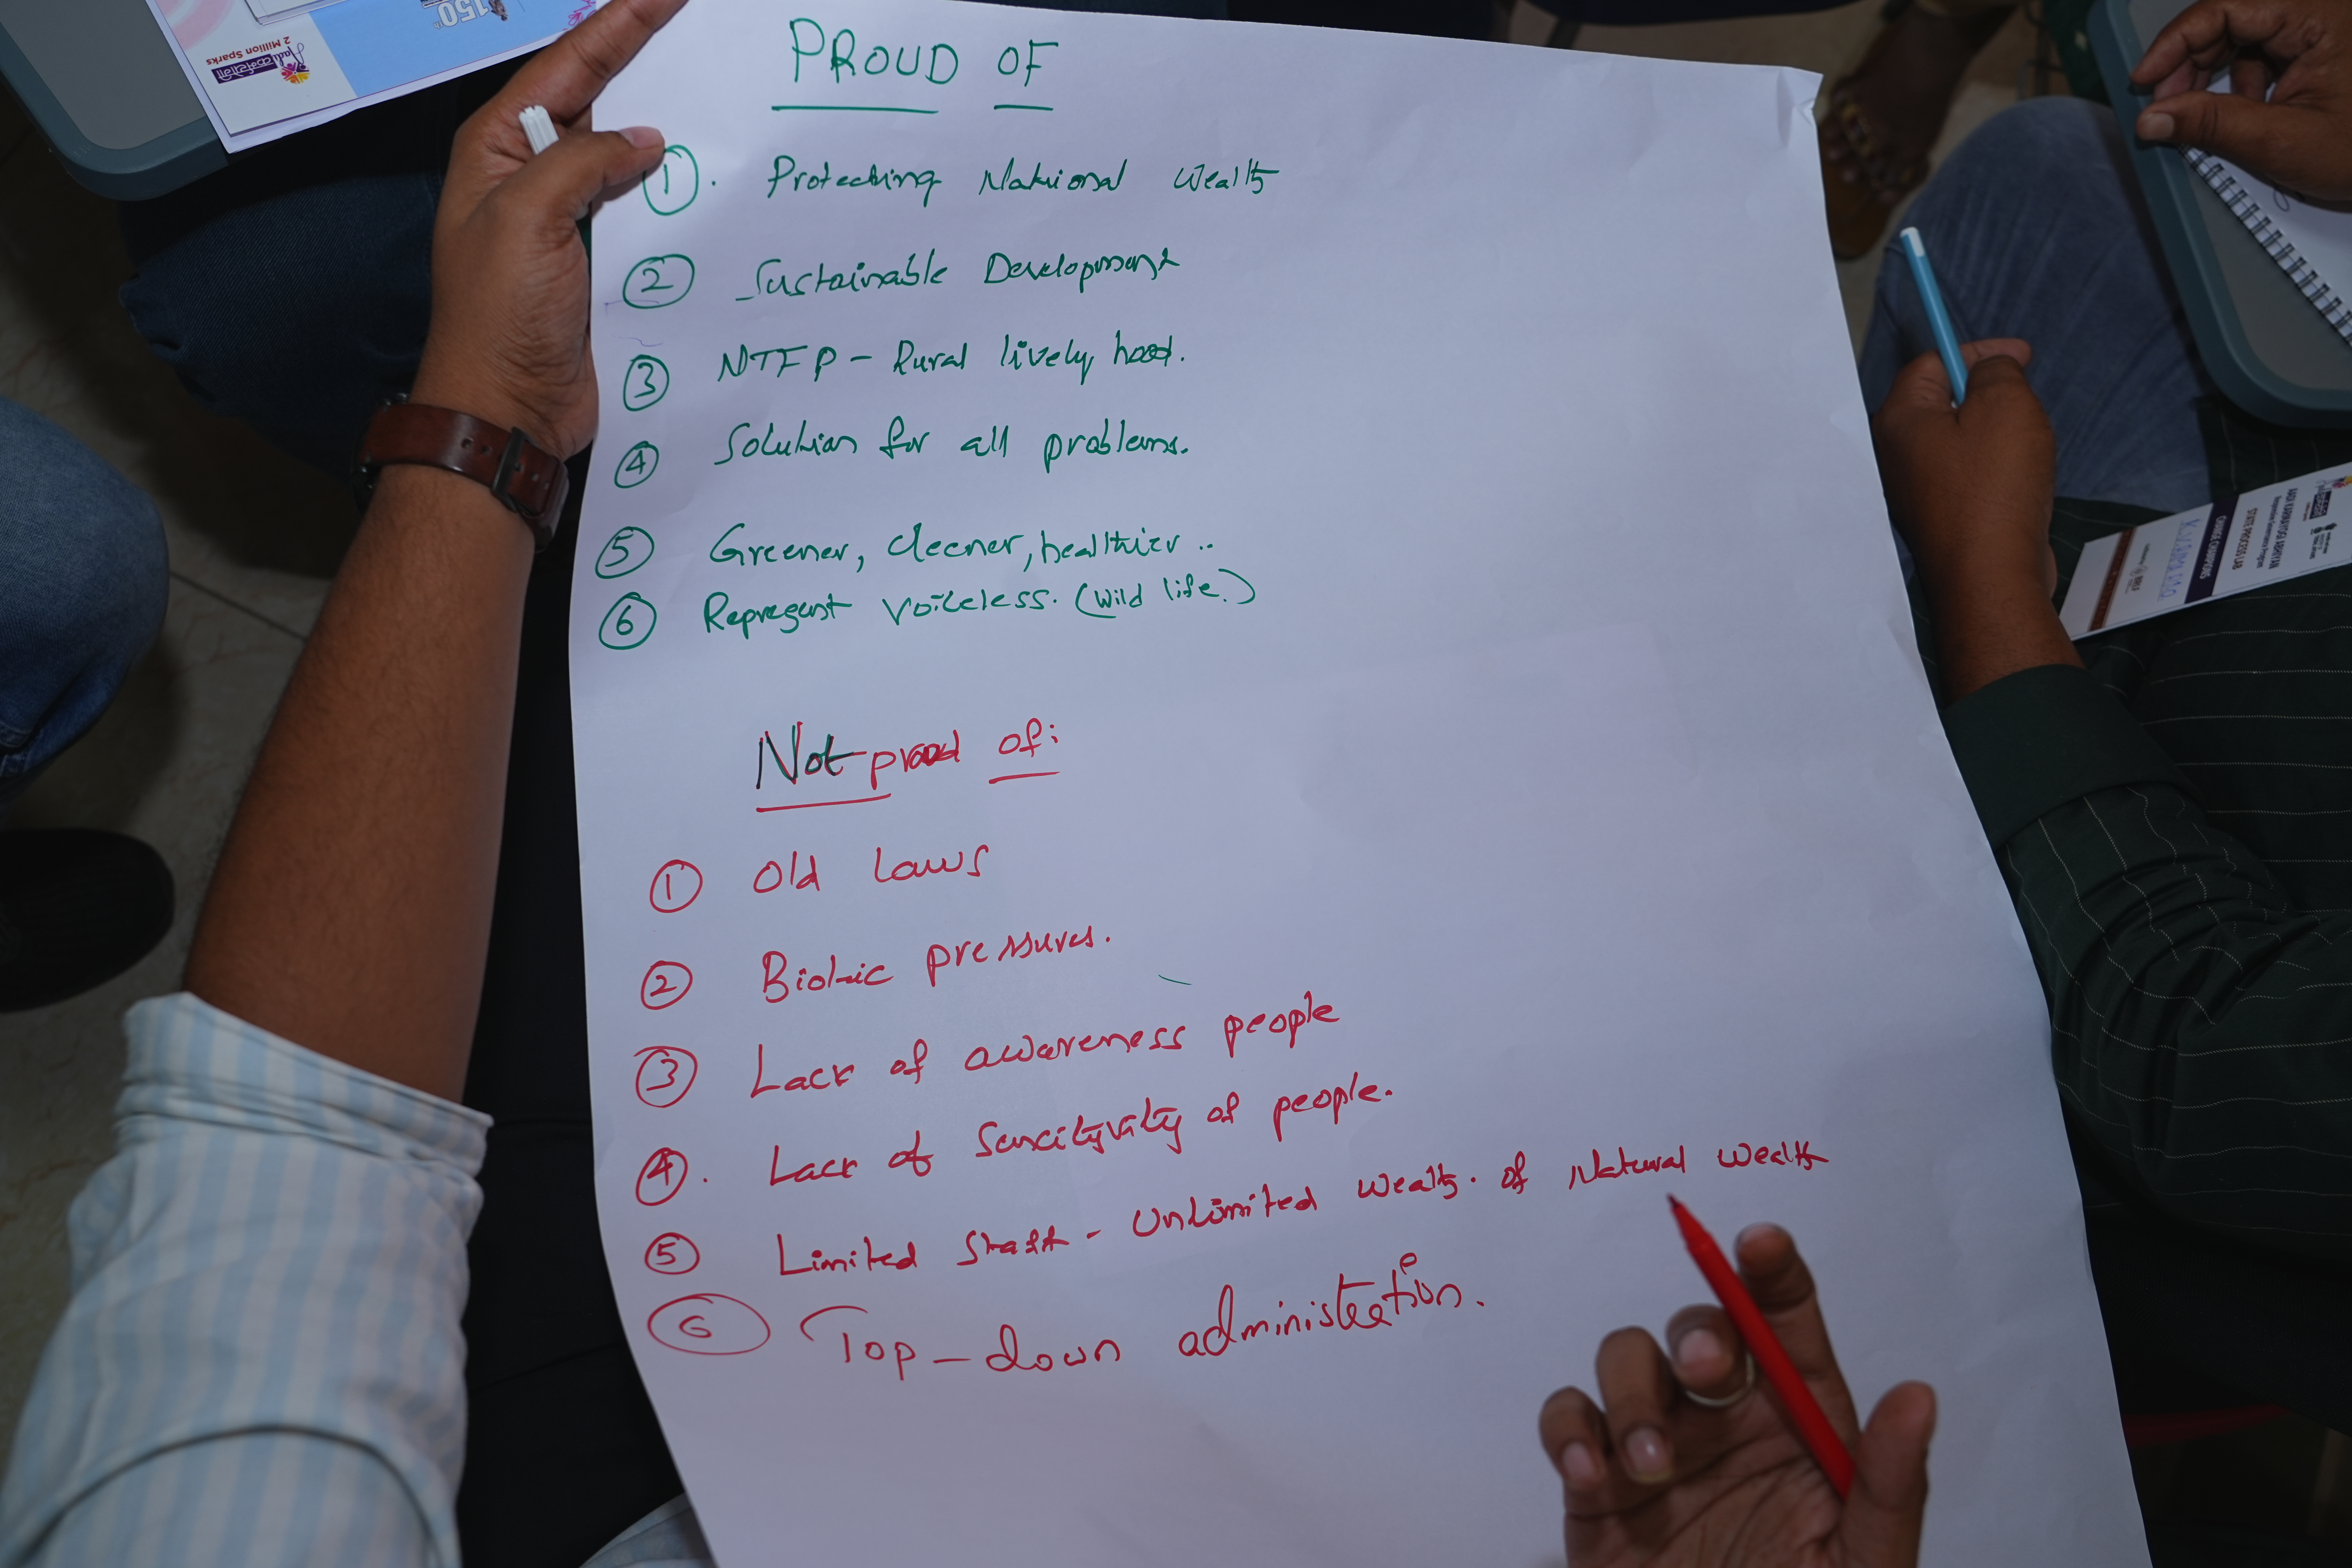 150
2 Million Sparks
PROUD OF
1. Protecting National Wealth
2 Sustainable Development
3 NTFP - Rural lively hood.
4 Solution for all problems.
5 Greener, cleener, healthier ..
6 Represent voiceless. (wild life.)
Not proud of:
1 Old Laws
2 Biotic pressures.
3 Lack of awareness people
4. Lack of Senscityvity of people.
5 Limited Staff - Unlimited wealth. of Natural wealth
6 Top-down administration.
STATE PROCESS LAB
CHANGE CHAMPIONS